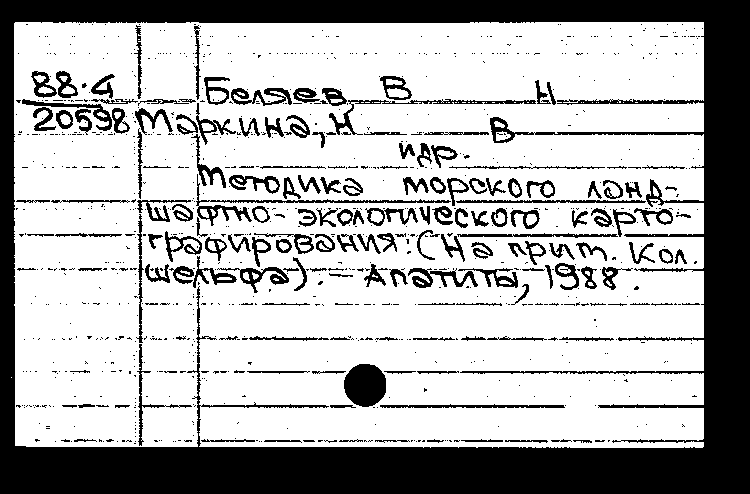 88-4 Беляев, В Н
20598 Маркина, Н В
и др.
Методика морского ланд-
шафтно-экологического карто-
графирования: (На прим. Кол.
шельфа). — Апатиты, 1988.